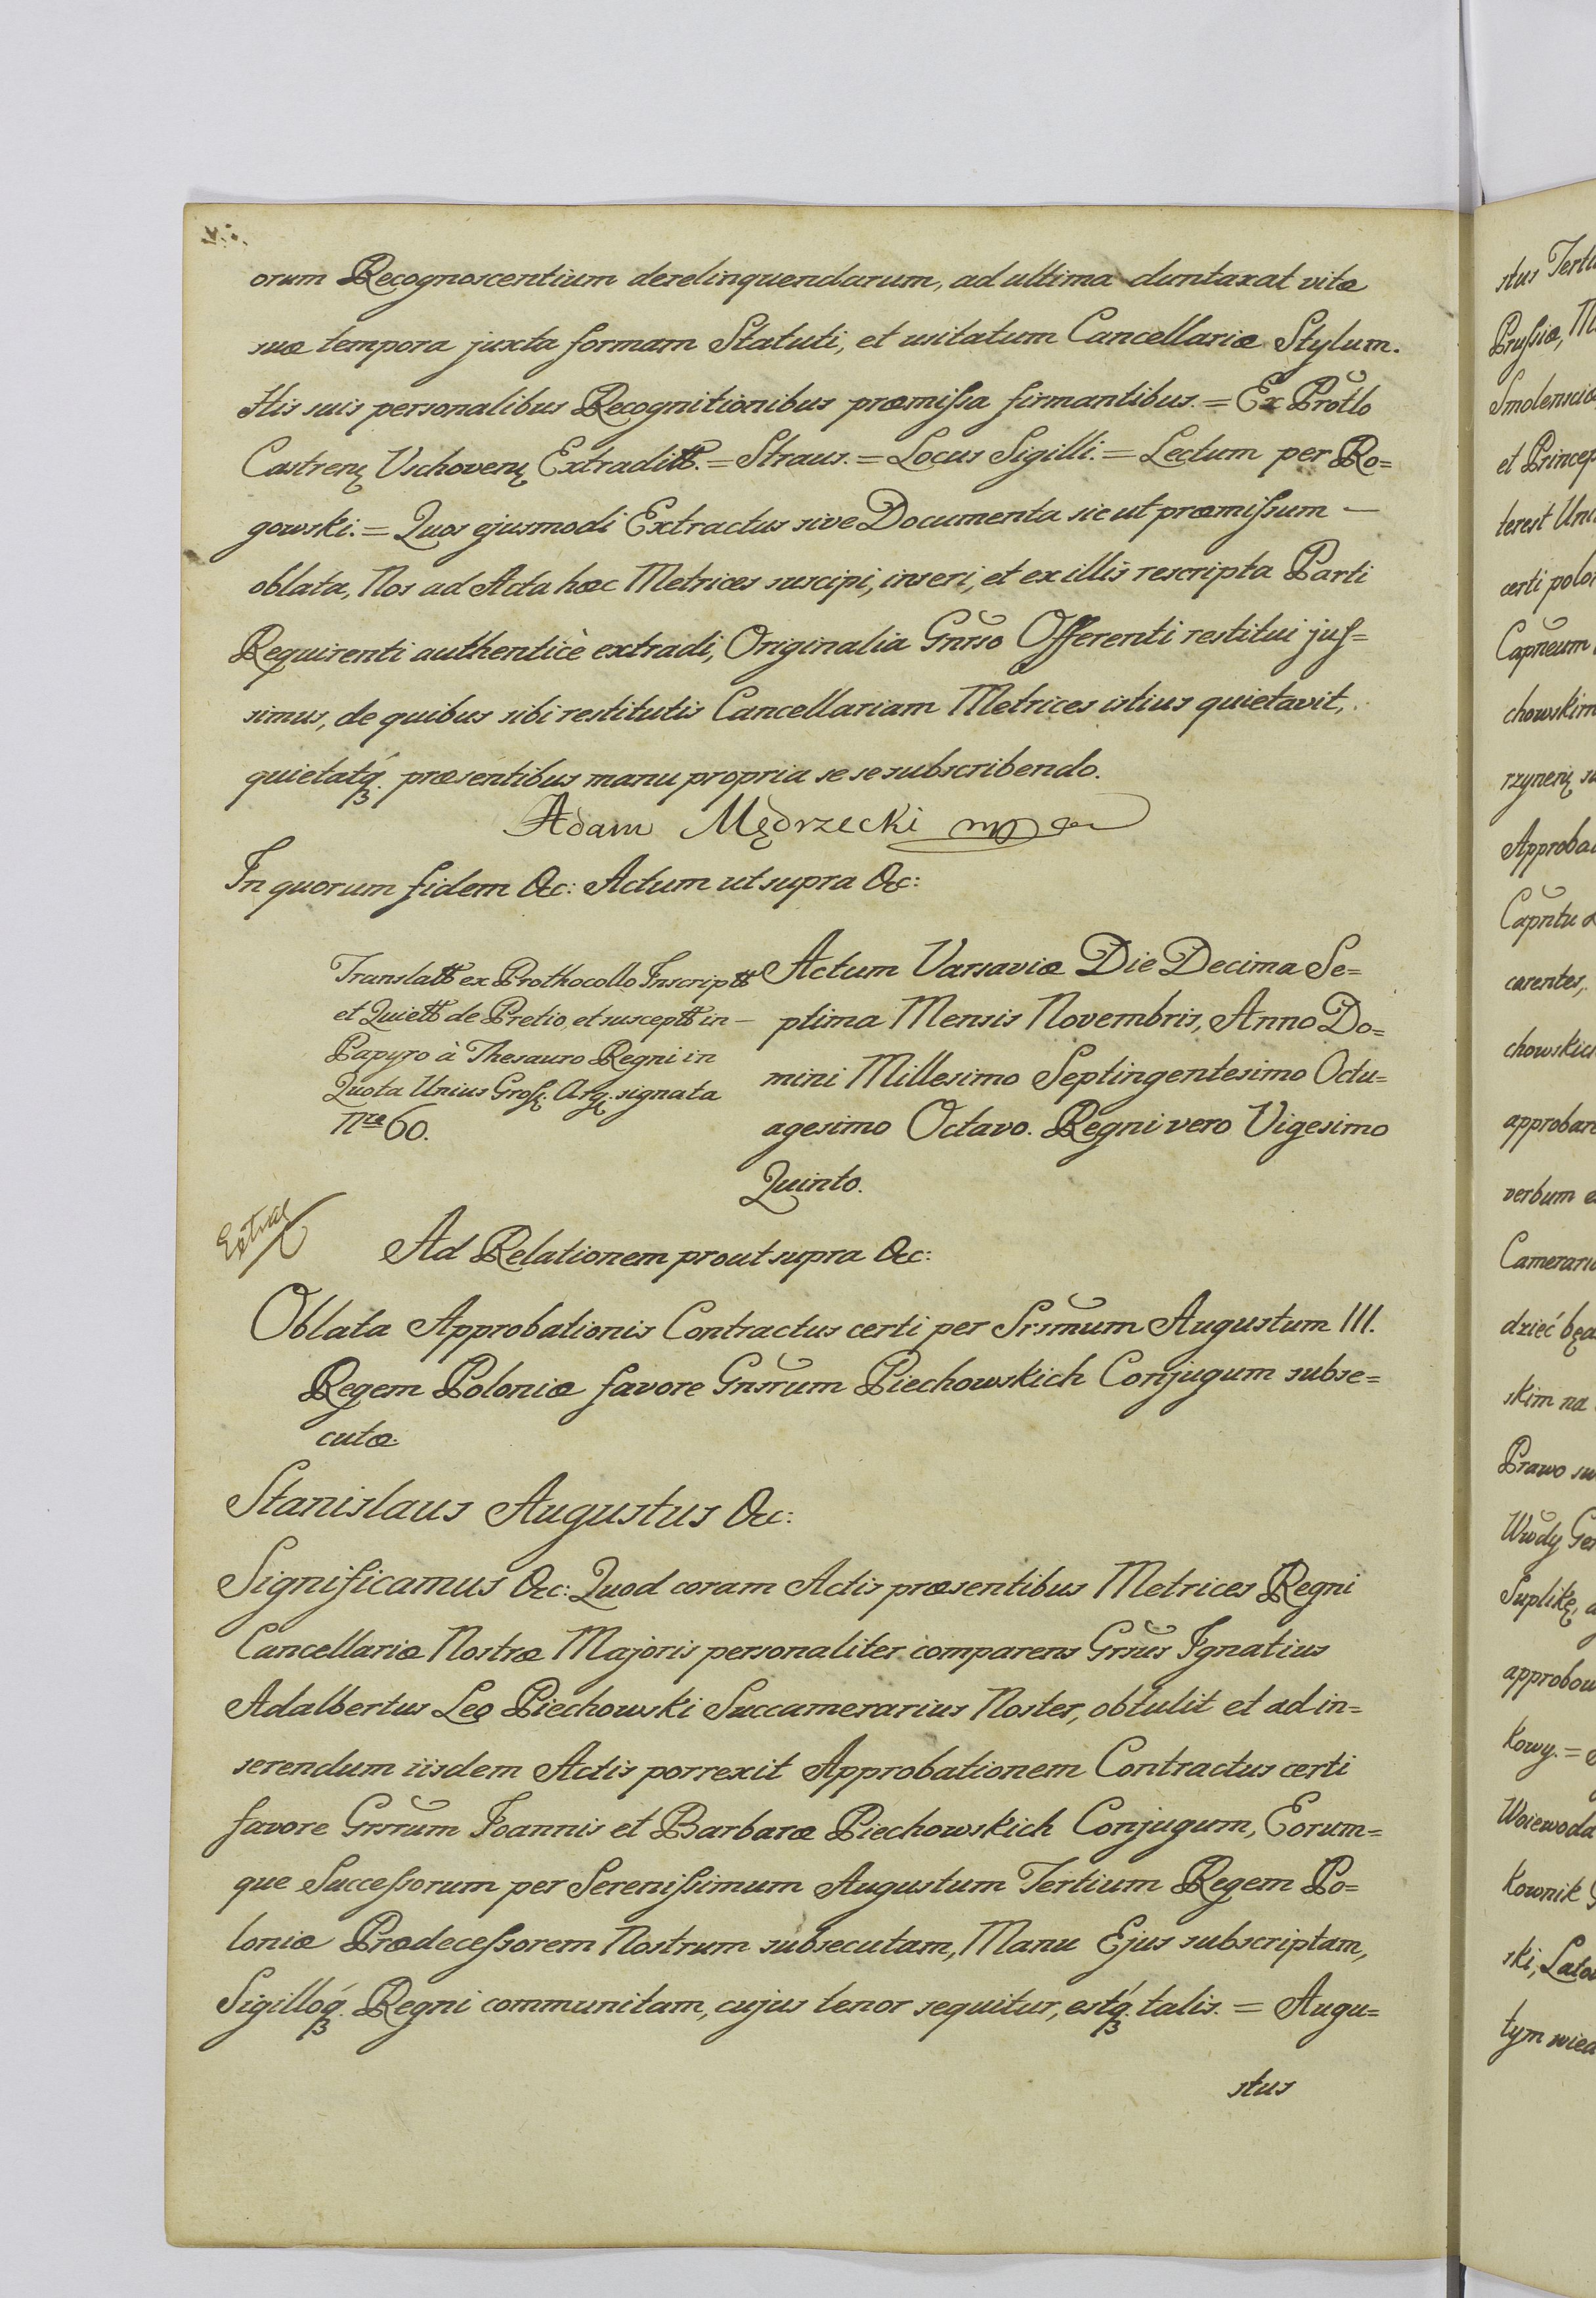 orum Recognoscentium derelinquendarum, ad ultima duntaxat vitæ
suæ tempora juxta formam Statuti, et usitatum Cancellariæ Stylum.
His suis personalibus Recognitionibus præmißa firmantibus. = Ex Protlo
Castrenị Vschovenị Extraditt. = Straus. = Locus Sigilli. = Lectum per Ro=
gowski. = Quos ejusmodi Extractus sive Documenta sic ut præmißum —
oblata, Nos ad Acta hæc Metrices suscipi, inseri, et ex illis rescripta Parti
Requirenti authenticè extradi, Originalia Gnrso Offerenti restitui juſ=
simus, de quibus sibi restitutis Cancellariam Metrices istius quietavit,
quietatq́. præsentibus manu propria se se subscribendo.
Adam Mędrzecki mp
In quorum fidem &c: Actum ut supra &c:
Translatt ex Prothocollo Inscriptt
et Quiett de Pretio, et susceptt in —
Papyro à Thesauro Regni in
Quota Unius Groſs. Arg. signata
Nro 60.
Actum Varsaviæ Die Decima Se=
ptima Mensis Novembris, Anno Do=
mini Millesimo Septingentesimo Octu=
agesimo Octavo. Regni vero Vigesimo
Quinto.
Ad Relationem prout supra &c:
Oblata Approbationis Contractus certi per Srsmum Augustum III.
Regem Poloniæ favore Gnsrum Piechowskich Conjugum subse=
cutæ.
Stanislaus Augustus &c:
Significamus &c: Quod coram Actis præsentibus Metrices Regni
Cancellariæ Nostræ Majoris personaliter comparens Grsus Ignatius
Adalbertus Leo Piechowski Succamerarius Noster, obtulit et ad in=
serendum iisdem Actis porrexit Approbationem Contractus certi
favore Grsrum Joannis et Barbaræ Piechowskich Conjugum, Eorum=
que Succeßorum per Serenißimum Augustum Tertium Regem Po=
loniæ Prædeceßorem Nostrum subsecutam, Manu Ejus subscriptam,
Sigilloq́. Regni communitam, cujus tenor sequitur, estq́. talis. = Augu=
stus